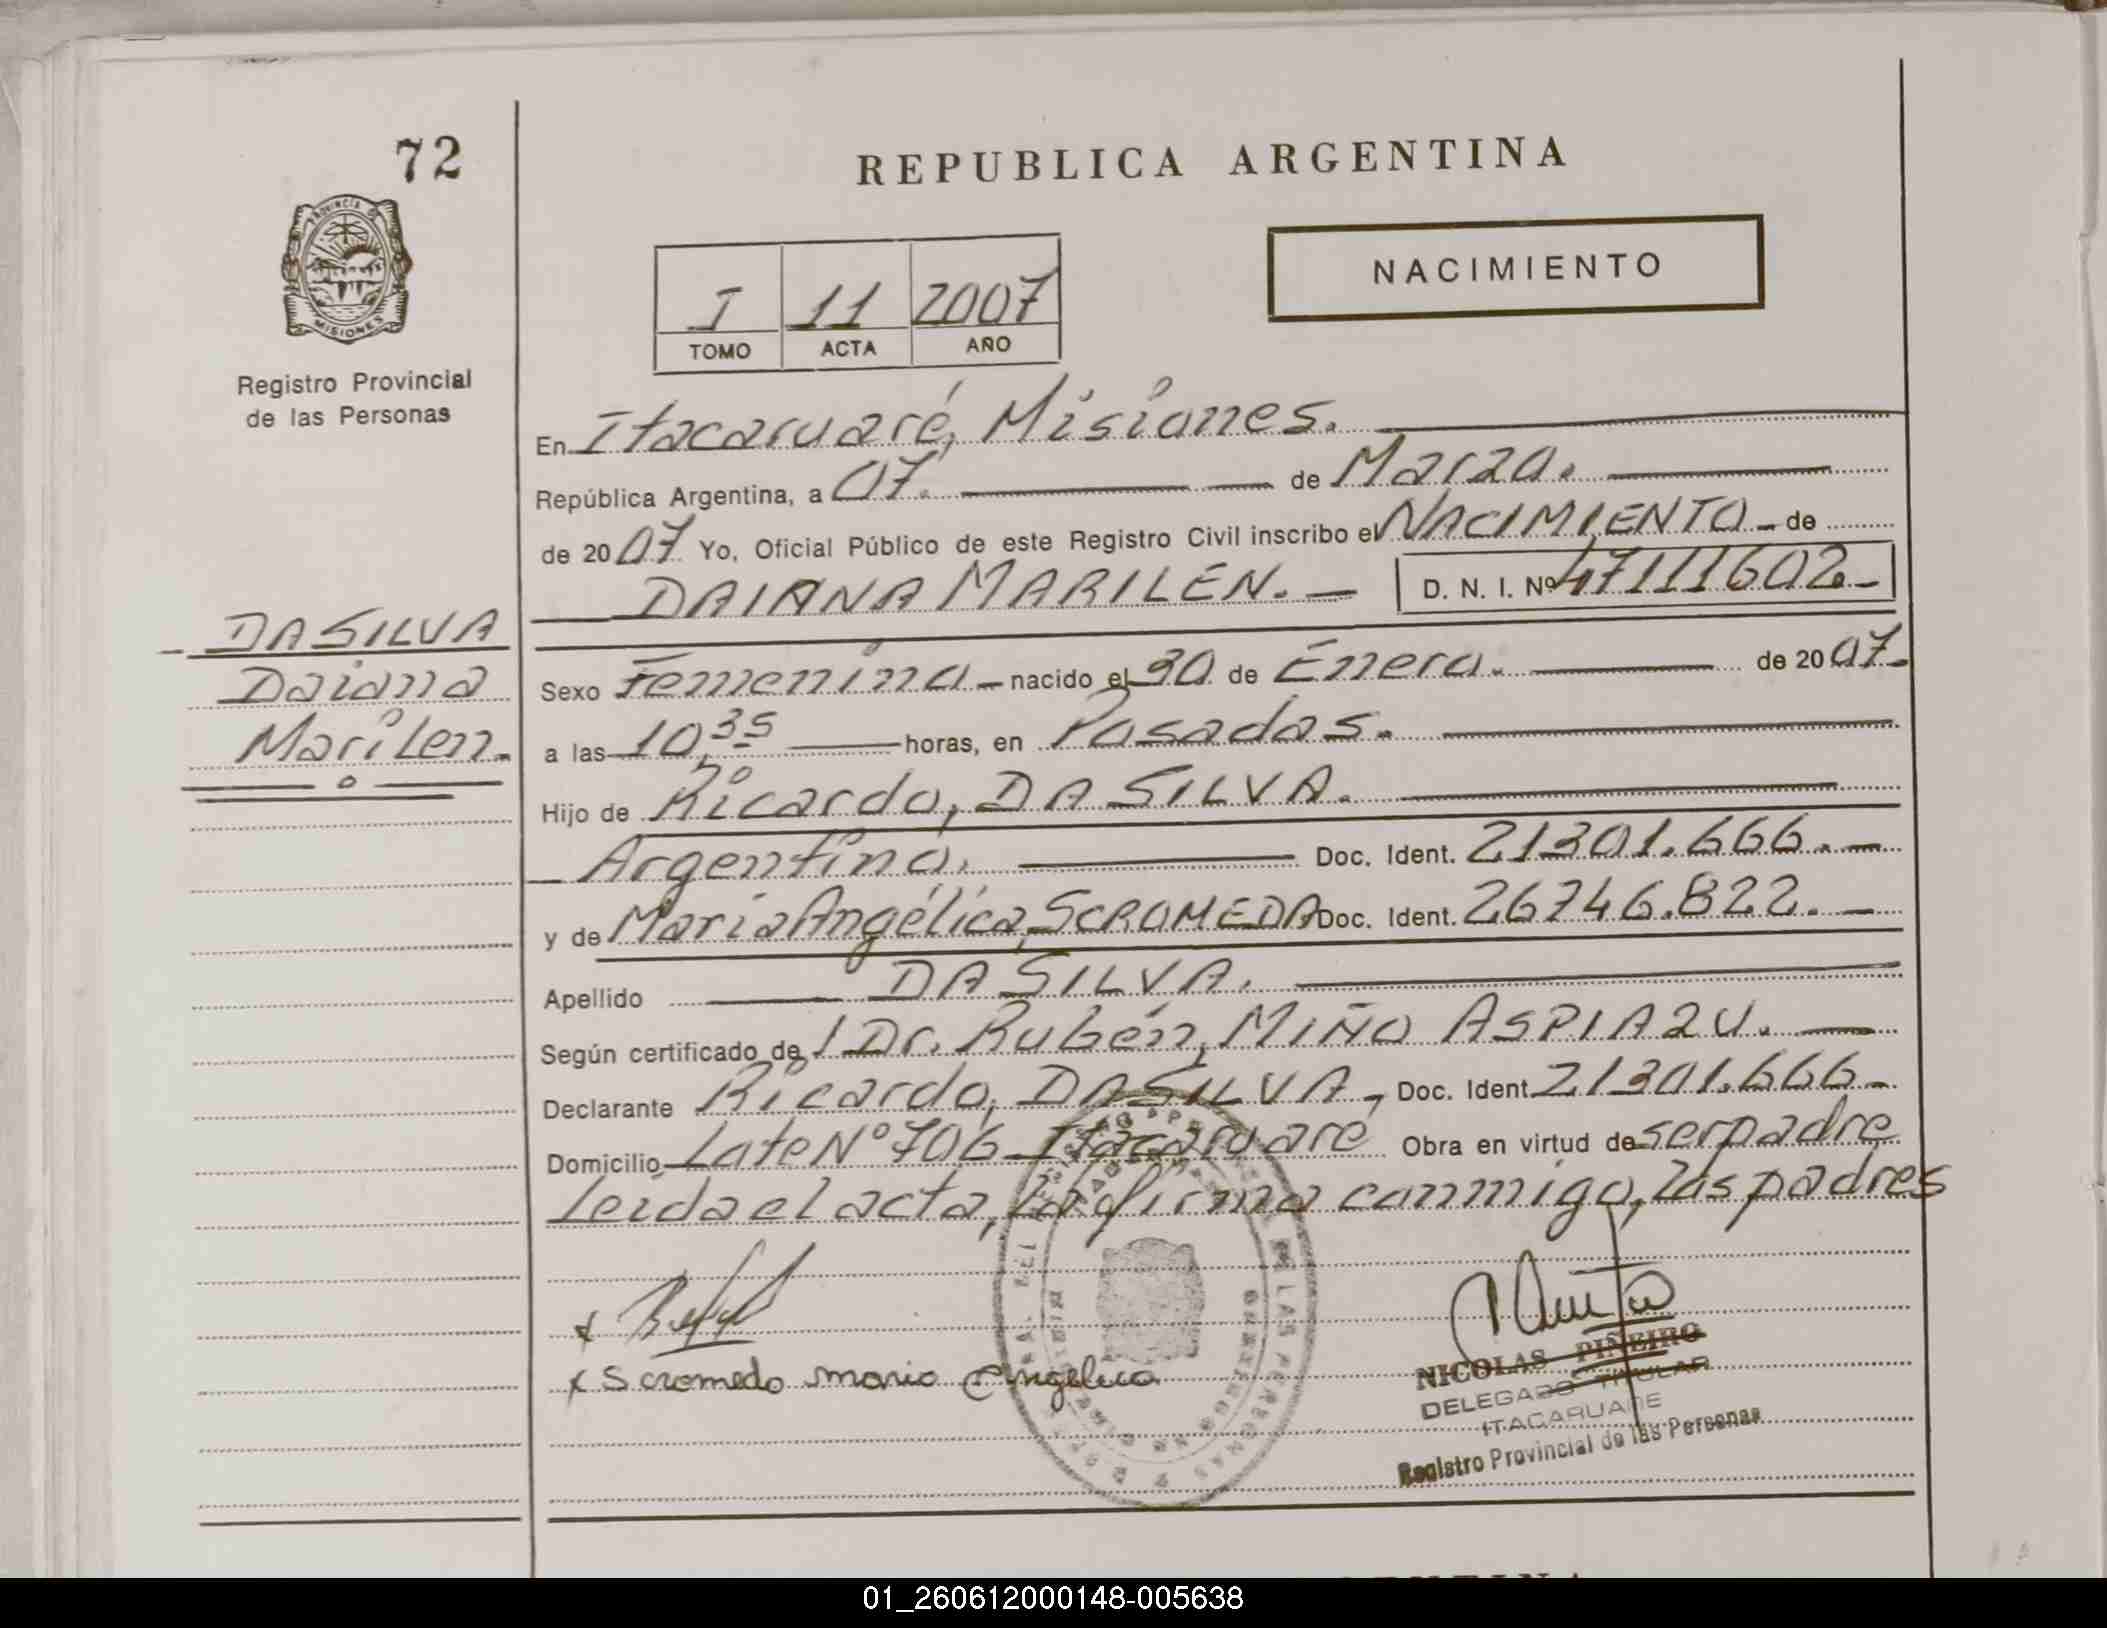 72
REPUBLICA ARGENTINA
PROVINCIA DE
MISIONES
NACIMIENTO
I 11 2007
TOMO ACTA AÑO
Registro Provincial
de las Personas
En Itacaruaré, Misiones.
República Argentina, a 07. de Marzo.
de 2007 Yo, Oficial Público de este Registro Civil inscribo el NACIMIENTO - de
DAIANA MARILEN. - D. N. I. Nº 47111602.-
- DA SILVA
Daiana
Marilen.
Sexo Femenino - nacido el 30 de Enero. de 2007.
a las 10,35 horas, en Posadas.
Hijo de Ricardo, DA SILVA.
Argentino. Doc. Ident. 21301.666.-
y de María Angélica, SCROMEDA Doc. Ident. 26746.822.-
Apellido DA SILVA.
Según certificado de / Dr. Rubén, MIÑO ASPIAZU.
Declarante Ricardo, DA SILVA, Doc. Ident. 21301.666-
Domicilio Lote Nº 706 Itacaruaré Obra en virtud de ser padre
Leída el acta, la firma conmigo, los padres
x
x Scromeda maria Angelica
NICOLAS PIÑEIRO
DELEGADO TITULAR
ITACARUARE
Registro Provincial de las Personas
01_260612000148-005638